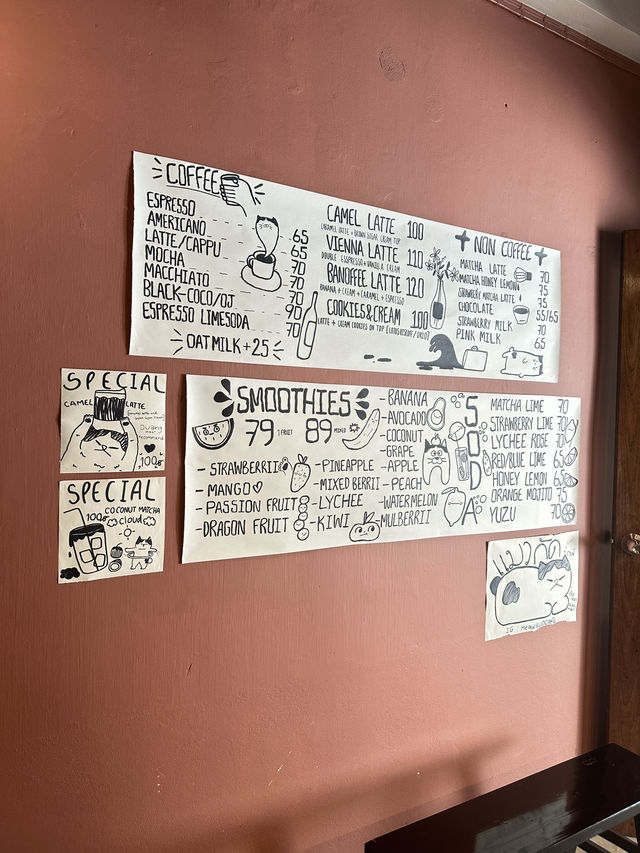 COFFEE
ESPRESSO
AMERICANO 65
LATTE/CAPPU 65
MOCHA 70
MACCHIATO 70
BLACK-COCO/OJ 90
ESPRESSO LIMESODA 70
OATMILK +25
CAMEL LATTE 100
CARAMEL LATTE + BROWN SUGAR CREAM TOP
VIENNA LATTE 110
DOUBLE ESSPRESSO + VANILLA CREAM
BANOFFEE LATTE 120
BANANA + CREAM + CARAMEL + ESPRESSO
COOKIES&CREAM 100
LATTE + CREAM COOKIES ON TOP (LOTUSBISCOFF/OREO)
NON COFFEE
MATCHA LATTE 70
MATCHA HONEY LEMON 75
STRAWBERRY MATCHA LATTE 75
CHOCOLATE 55/65
STRAWBERRY MILK 70
PINK MILK 65
SPECIAL
CAMEL LATTE
100
SPECIAL
100
COCONUT MATCHA
cloud
SMOOTHIES
79 1 FRUIT 89 MIXED
- STRAWBERRII
- MANGO
- PASSION FRUIT
- DRAGON FRUIT
- PINEAPPLE
- MIXED BERRII
- LYCHEE
- KIWI
- BANANA
- AVOCADO
- COCONUT
- GRAPE
- APPLE
- PEACH
- WATERMELON
- MULBERRII
SODA
MATCHA LIME 70
STRAWBERRY LIME 70
LYCHEE ROSE 70
RED/BLUE LIME 65
HONEY LEMON 65
ORANGE MOJITO 75
YUZU 70
แมวกัด